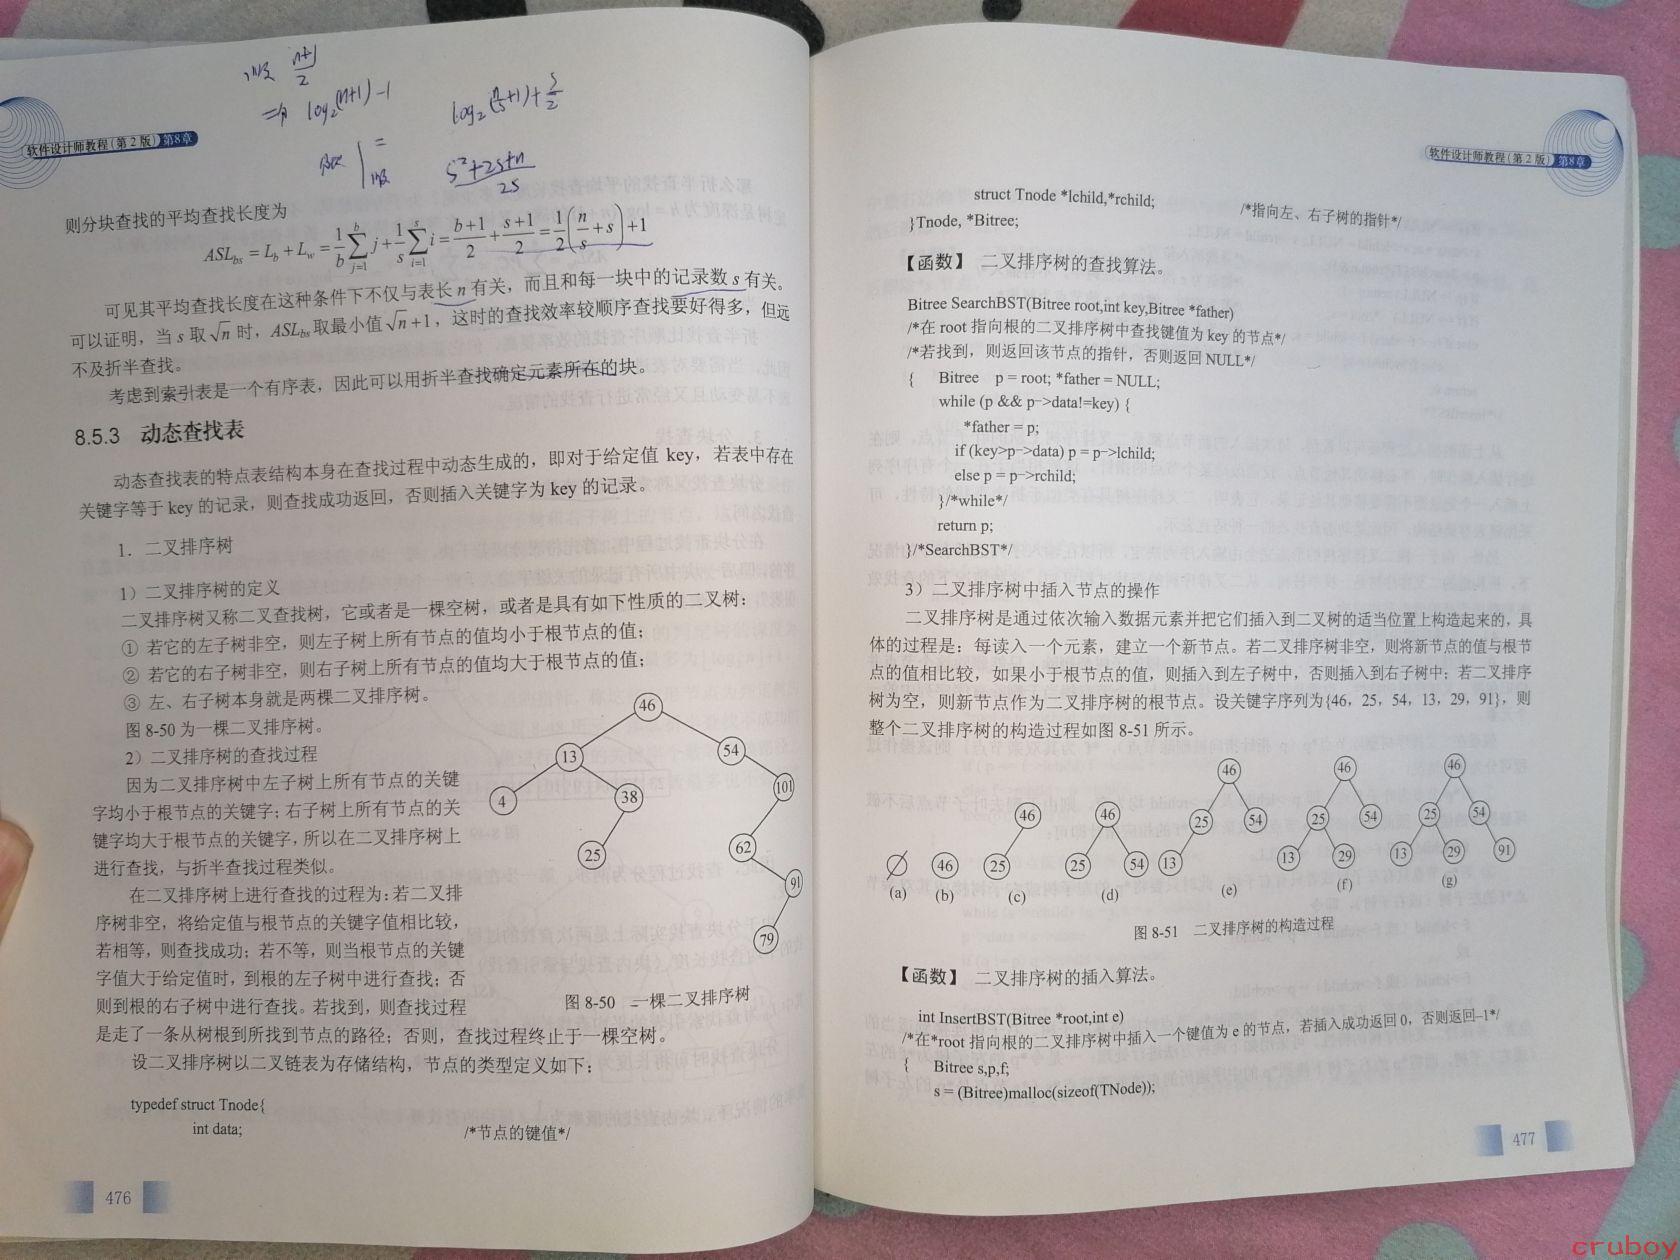 顺序 n+1/2
二分 log₂(n+1)-1
log₂(n/s+1)+s/2
s²+2s+n/2s
软件设计师教程(第2版) 第8章
则分块查找的平均查找长度为
ASL_bs = L_b + L_w = 1/b ∑_{j=1}^{b} j + 1/s ∑_{i=1}^{s} i = b+1/2 + s+1/2 = 1/2(n/s + s) + 1
可见其平均查找长度在这种条件下不仅与表长 n 有关，而且和每一块中的记录数 s 有关。
可以证明，当 s 取 √n 时，ASL_bs 取最小值 √n+1，这时的查找效率较顺序查找要好得多，但远
不及折半查找。
考虑到索引表是一个有序表，因此可以用折半查找确定元素所在的块。
8.5.3 动态查找表
动态查找表的特点表结构本身在查找过程中动态生成的，即对于给定值 key，若表中存在
关键字等于 key 的记录，则查找成功返回，否则插入关键字为 key 的记录。
1．二叉排序树
1）二叉排序树的定义
二叉排序树又称二叉查找树，它或者是一棵空树，或者是具有如下性质的二叉树：
① 若它的左子树非空，则左子树上所有节点的值均小于根节点的值；
② 若它的右子树非空，则右子树上所有节点的值均大于根节点的值；
③ 左、右子树本身就是两棵二叉排序树。
图 8-50 为一棵二叉排序树。
2）二叉排序树的查找过程
因为二叉排序树中左子树上所有节点的关键
字均小于根节点的关键字；右子树上所有节点的关
键字均大于根节点的关键字，所以在二叉排序树上
进行查找，与折半查找过程类似。
在二叉排序树上进行查找的过程为：若二叉排
序树非空，将给定值与根节点的关键字值相比较，
若相等，则查找成功；若不等，则当根节点的关键
字值大于给定值时，到根的左子树中进行查找；否
则到根的右子树中进行查找。若找到，则查找过程
是走了一条从树根到所找到节点的路径；否则，查找过程终止于一棵空树。
46
13 54
4 38 101
25 62
91
79
图 8-50 一棵二叉排序树
设二叉排序树以二叉链表为存储结构，节点的类型定义如下：
typedef struct Tnode{
int data; /*节点的键值*/
476
软件设计师教程(第2版) 第8章
struct Tnode *lchild,*rchild; /*指向左、右子树的指针*/
}Tnode, *Bitree;
【函数】 二叉排序树的查找算法。
Bitree SearchBST(Bitree root,int key,Bitree *father)
/*在 root 指向根的二叉排序树中查找键值为 key 的节点*/
/*若找到，则返回该节点的指针，否则返回 NULL*/
{ Bitree p = root; *father = NULL;
while (p && p->data!=key) {
*father = p;
if (key>p->data) p = p->lchild;
else p = p->rchild;
}/*while*/
return p;
}/*SearchBST*/
3）二叉排序树中插入节点的操作
二叉排序树是通过依次输入数据元素并把它们插入到二叉树的适当位置上构造起来的，具
体的过程是：每读入一个元素，建立一个新节点。若二叉排序树非空，则将新节点的值与根节
点的值相比较，如果小于根节点的值，则插入到左子树中，否则插入到右子树中；若二叉排序
树为空，则新节点作为二叉排序树的根节点。设关键字序列为{46，25，54，13，29，91}，则
整个二叉排序树的构造过程如图 8-51 所示。
46 46 46
46 46 25 54 25 54 25 54
46 25 25 54 13 13 29 13 29 91
(a) (b) (c) (d) (e) (f) (g)
图 8-51 二叉排序树的构造过程
【函数】 二叉排序树的插入算法。
int InsertBST(Bitree *root,int e)
/*在*root 指向根的二叉排序树中插入一个键值为 e 的节点，若插入成功返回 0，否则返回–1*/
{ Bitree s,p,f;
s = (Bitree)malloc(sizeof(TNode));
477
cruboy